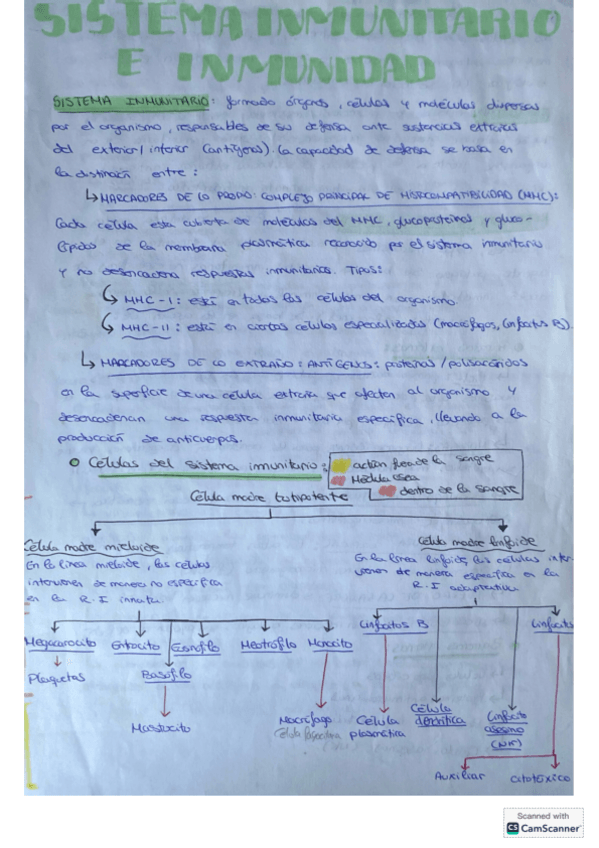 SISTEMA INMUNITARIO
E INMUNIDAD
SISTEMA INMUNITARIO: formado órganos, células y moléculas dispersas
por el organismo, responsables de su defensa ante sustancias extrañas
del exterior/interior (antígenos). La capacidad de defensa se basa en
la distinción entre:
↳ MARCADORES DE LO PROPIO: COMPLEJO PRINCIPAL DE HISTOCOMPATIBILIDAD (MHC):
Cada célula esta cubierta de moléculas del MHC, glucoproteínas y gluco-
lípidos de la membrana plasmática reconocido por el sistema inmunitario
y no desencadena respuestas inmunitarias. Tipos:
↳ MHC-I: está en todas las células del organismo.
↳ MHC-II: está en ciertas células especializadas (macrófagos, linfocitos B).
↳ MARCADORES DE LO EXTRAÑO: ANTÍGENOS: proteínas/polisacáridos
en la superficie de una célula extraña que afectan al organismo y
desencadenan una respuesta inmunitaria específica, llevando a la
producción de anticuerpos.
Células del sistema inmunitario:
acción fuera de la sangre
Médula ósea
dentro de la sangre
Célula madre totipotente
Célula madre mieloide
En la línea mieloide, las células
intervienen de manera no específica
en la R.I innata.
Célula madre linfoide
En la línea linfoide, las células inter-
vienen de manera específica en la
R.I adaptativa
Megacariocito Eritrocito Eosinófilo Neutrófilo Monocito
Linfocitos B Linfocitos
Plaquetas Basófilo
Mastocito
Macrófago
Célula fagocítica
Célula
plasmática
Célula
dendrítica
Linfocito
asesino
(NK)
Auxiliar citotóxico
Scanned with
CS CamScanner